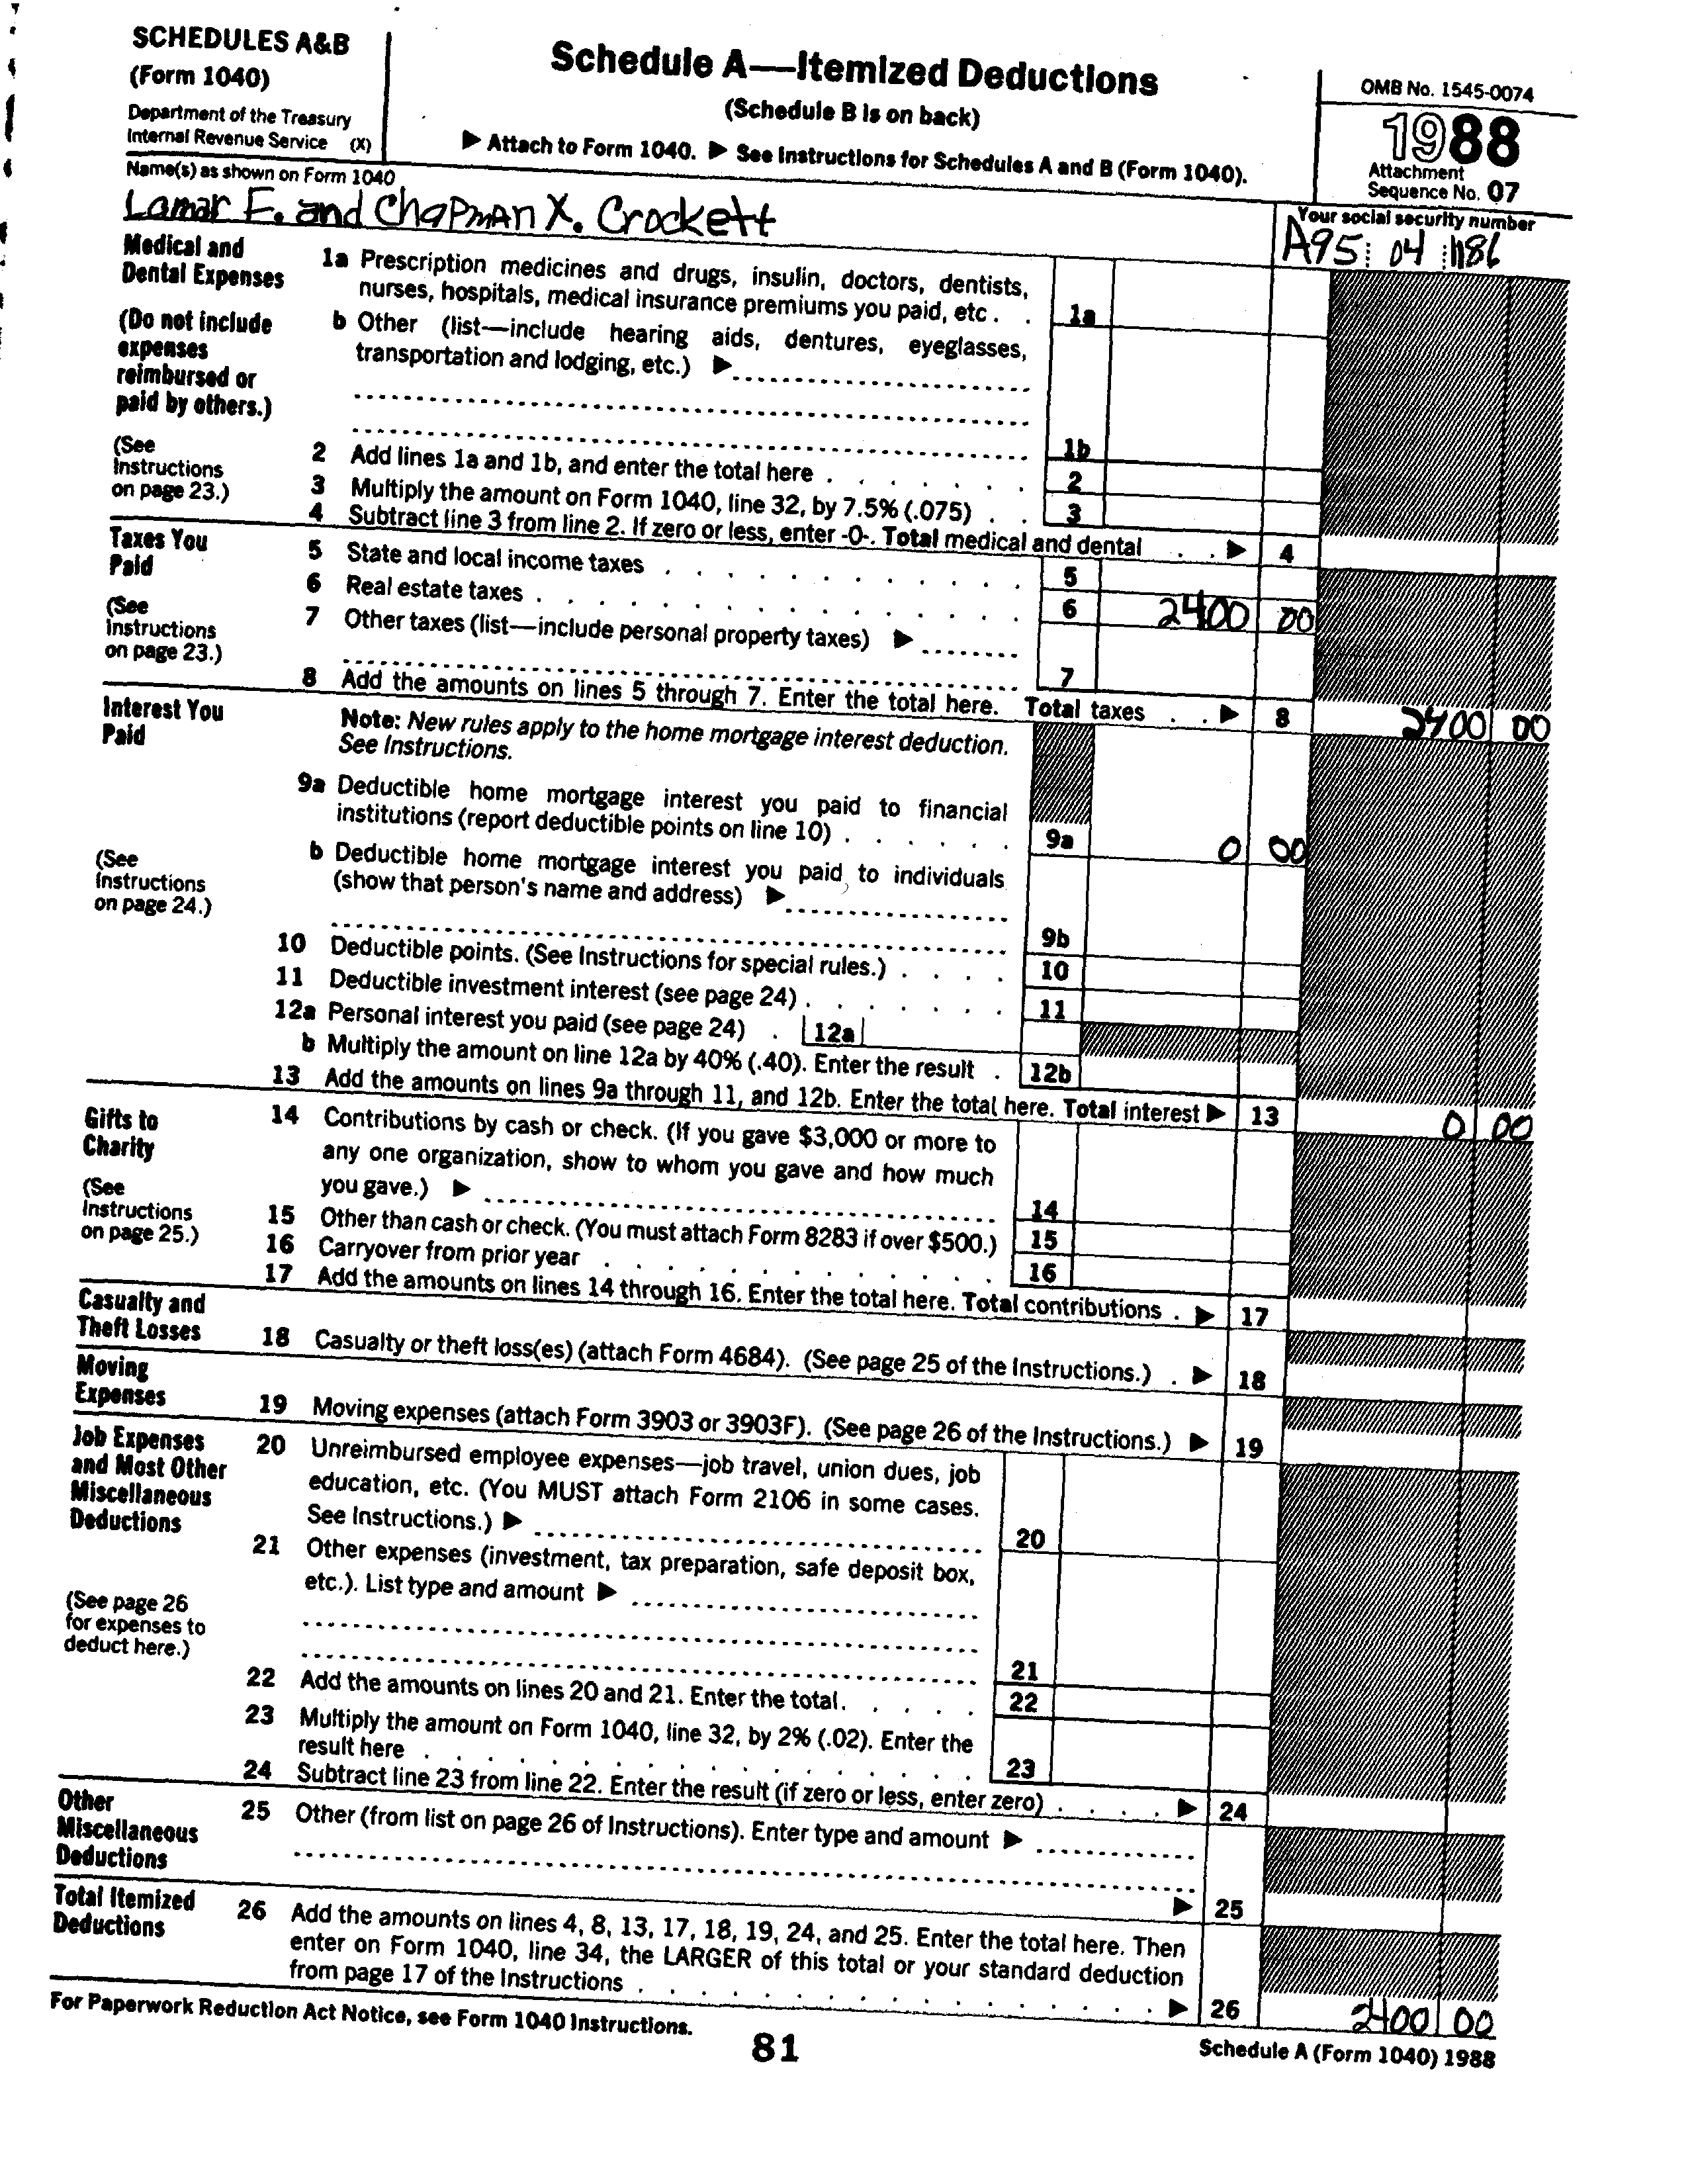 SCHEDULES A&B
(Form 1040)
Department of the Treasury
Internal Revenue Service (X)
Schedule A—Itemized Deductions
(Schedule B is on back)
▶ Attach to Form 1040. ▶ See Instructions for Schedules A and B (Form 1040).
OMB No. 1545-0074
1988
Attachment
Sequence No. 07
Name(s) as shown on Form 1040
Lamar E. and Chapman X. Crockett
Your social security number
A95 04 1186
Medical and
Dental Expenses
(Do not include
expenses
reimbursed or
paid by others.)
(See
Instructions
on page 23.)
1a Prescription medicines and drugs, insulin, doctors, dentists,
nurses, hospitals, medical insurance premiums you paid, etc . . 1a
b Other (list—include hearing aids, dentures, eyeglasses,
transportation and lodging, etc.) ▶
1b
2 Add lines 1a and 1b, and enter the total here . . . . . . . 2
3 Multiply the amount on Form 1040, line 32, by 7.5% (.075) . . 3
4 Subtract line 3 from line 2. If zero or less, enter -0-. Total medical and dental . . ▶ 4
Taxes You
Paid
(See
Instructions
on page 23.)
5 State and local income taxes . . . . . . . . . . . . 5
6 Real estate taxes . . . . . . . . . . . . . . . . 6 2400 00
7 Other taxes (list—include personal property taxes) ▶
7
8 Add the amounts on lines 5 through 7. Enter the total here. Total taxes . . ▶ 8 2400 00
Interest You
Paid
(See
Instructions
on page 24.)
Note: New rules apply to the home mortgage interest deduction.
See Instructions.
9a Deductible home mortgage interest you paid to financial
institutions (report deductible points on line 10) . . . . . . 9a 0 00
b Deductible home mortgage interest you paid to individuals
(show that person's name and address) ▶
9b
10 Deductible points. (See Instructions for special rules.) . . . . 10
11 Deductible investment interest (see page 24) . . . . . . . 11
12a Personal interest you paid (see page 24) . 12a
b Multiply the amount on line 12a by 40% (.40). Enter the result . 12b
13 Add the amounts on lines 9a through 11, and 12b. Enter the total here. Total interest ▶ 13 0 00
Gifts to
Charity
(See
Instructions
on page 25.)
14 Contributions by cash or check. (If you gave $3,000 or more to
any one organization, show to whom you gave and how much
you gave.) ▶ 14
15 Other than cash or check. (You must attach Form 8283 if over $500.) 15
16 Carryover from prior year . . . . . . . . . . . . . 16
17 Add the amounts on lines 14 through 16. Enter the total here. Total contributions . ▶ 17
Casualty and
Theft Losses
18 Casualty or theft loss(es) (attach Form 4684). (See page 25 of the Instructions.) . ▶ 18
Moving
Expenses
19 Moving expenses (attach Form 3903 or 3903F). (See page 26 of the Instructions.) ▶ 19
Job Expenses
and Most Other
Miscellaneous
Deductions
(See page 26
for expenses to
deduct here.)
20 Unreimbursed employee expenses—job travel, union dues, job
education, etc. (You MUST attach Form 2106 in some cases.
See Instructions.) ▶ 20
21 Other expenses (investment, tax preparation, safe deposit box,
etc.). List type and amount ▶
21
22 Add the amounts on lines 20 and 21. Enter the total. . . . . 22
23 Multiply the amount on Form 1040, line 32, by 2% (.02). Enter the
result here . . . . . . . . . . . . . . . . . . 23
24 Subtract line 23 from line 22. Enter the result (if zero or less, enter zero) . . . . ▶ 24
Other
Miscellaneous
Deductions
25 Other (from list on page 26 of Instructions). Enter type and amount ▶
▶ 25
Total Itemized
Deductions
26 Add the amounts on lines 4, 8, 13, 17, 18, 19, 24, and 25. Enter the total here. Then
enter on Form 1040, line 34, the LARGER of this total or your standard deduction
from page 17 of the Instructions . . . . . . . . . . . . . . . . . . ▶ 26 2400 00
For Paperwork Reduction Act Notice, see Form 1040 Instructions.
81
Schedule A (Form 1040) 1988